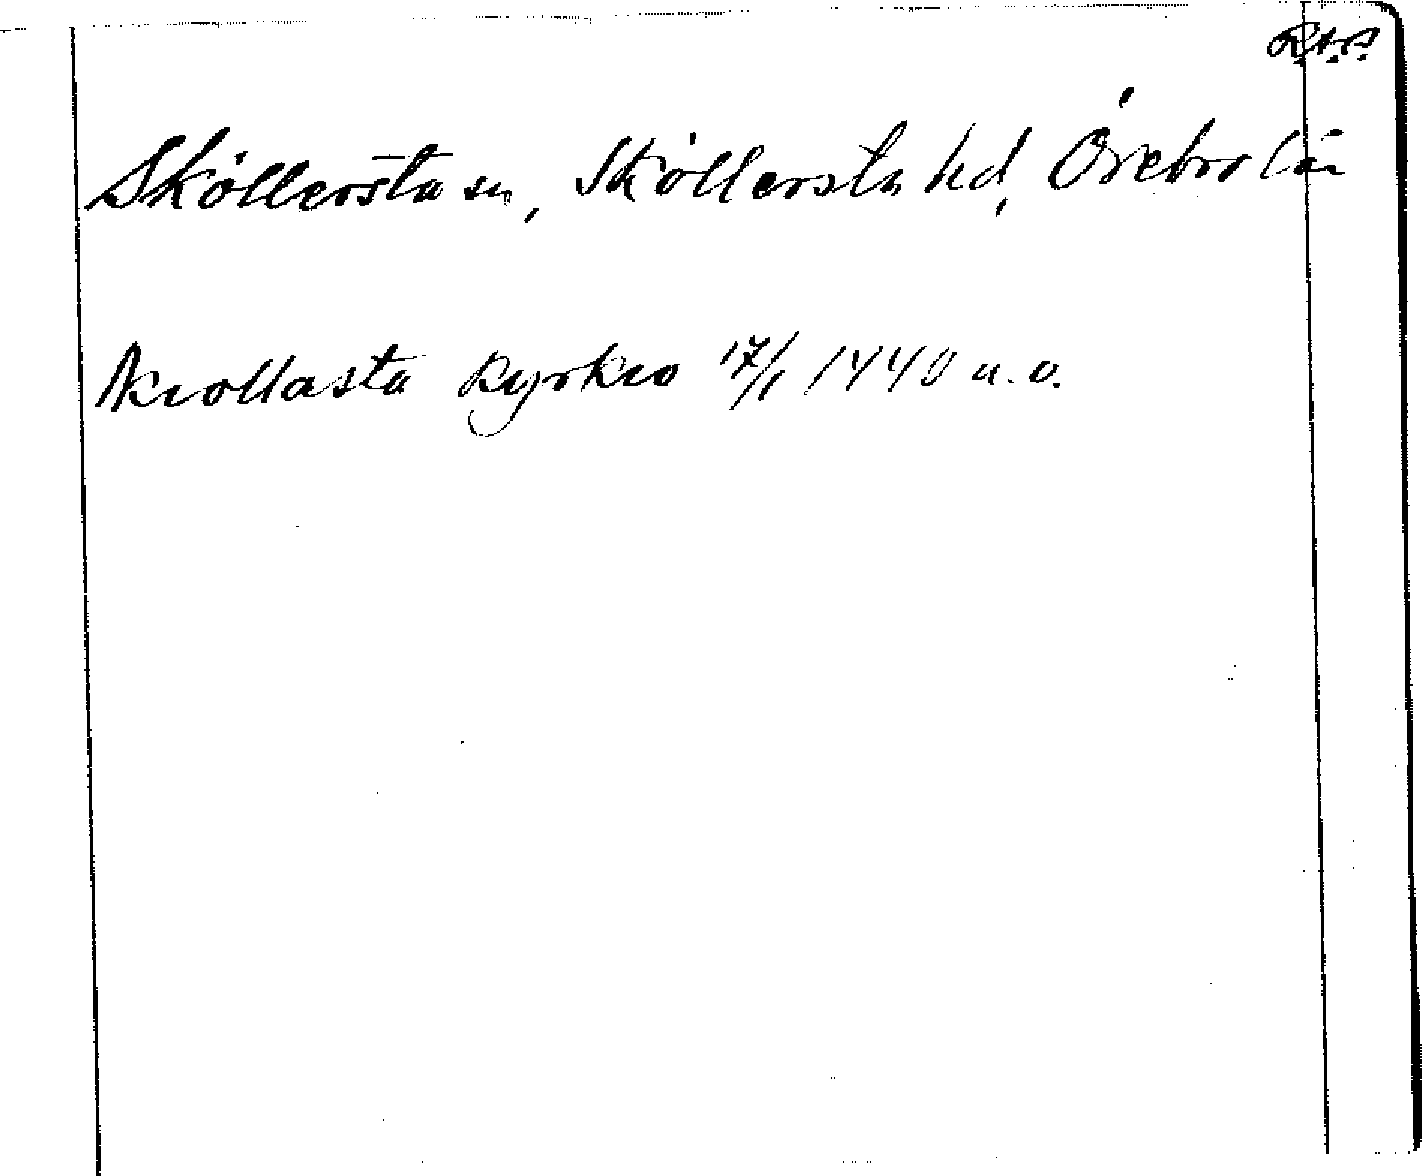 R.A.P.
Sköllersta sn, Sköllersta hd, Örebro län
Skiollasta kyrkio 17/1 1440 a. o.